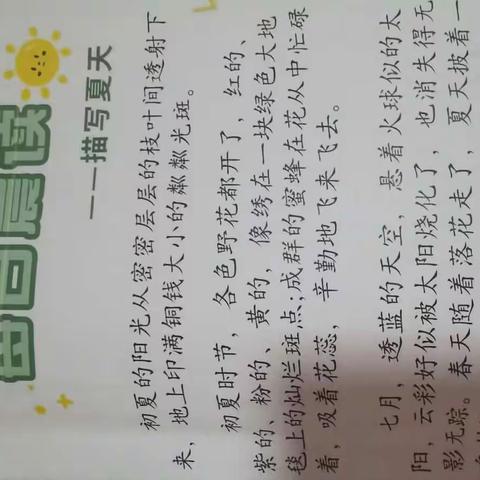 每日晨读
——描写夏天
初夏的阳光从密密层层的枝叶间透射下
来，地上印满铜钱大小的粼粼光斑。
初夏时节，各色野花都开了，红的、
紫的、粉的、黄的，像绣在一块绿色大地
毯上的灿烂斑点;成群的蜜蜂在花从中忙碌
着，吸着花蕊，辛勤地飞来飞去。
七月，透蓝的天空，悬着火球似的太
阳，云彩好似被太阳烧化了，也消失得无
影无踪。春天随着落花走了，夏天披着一